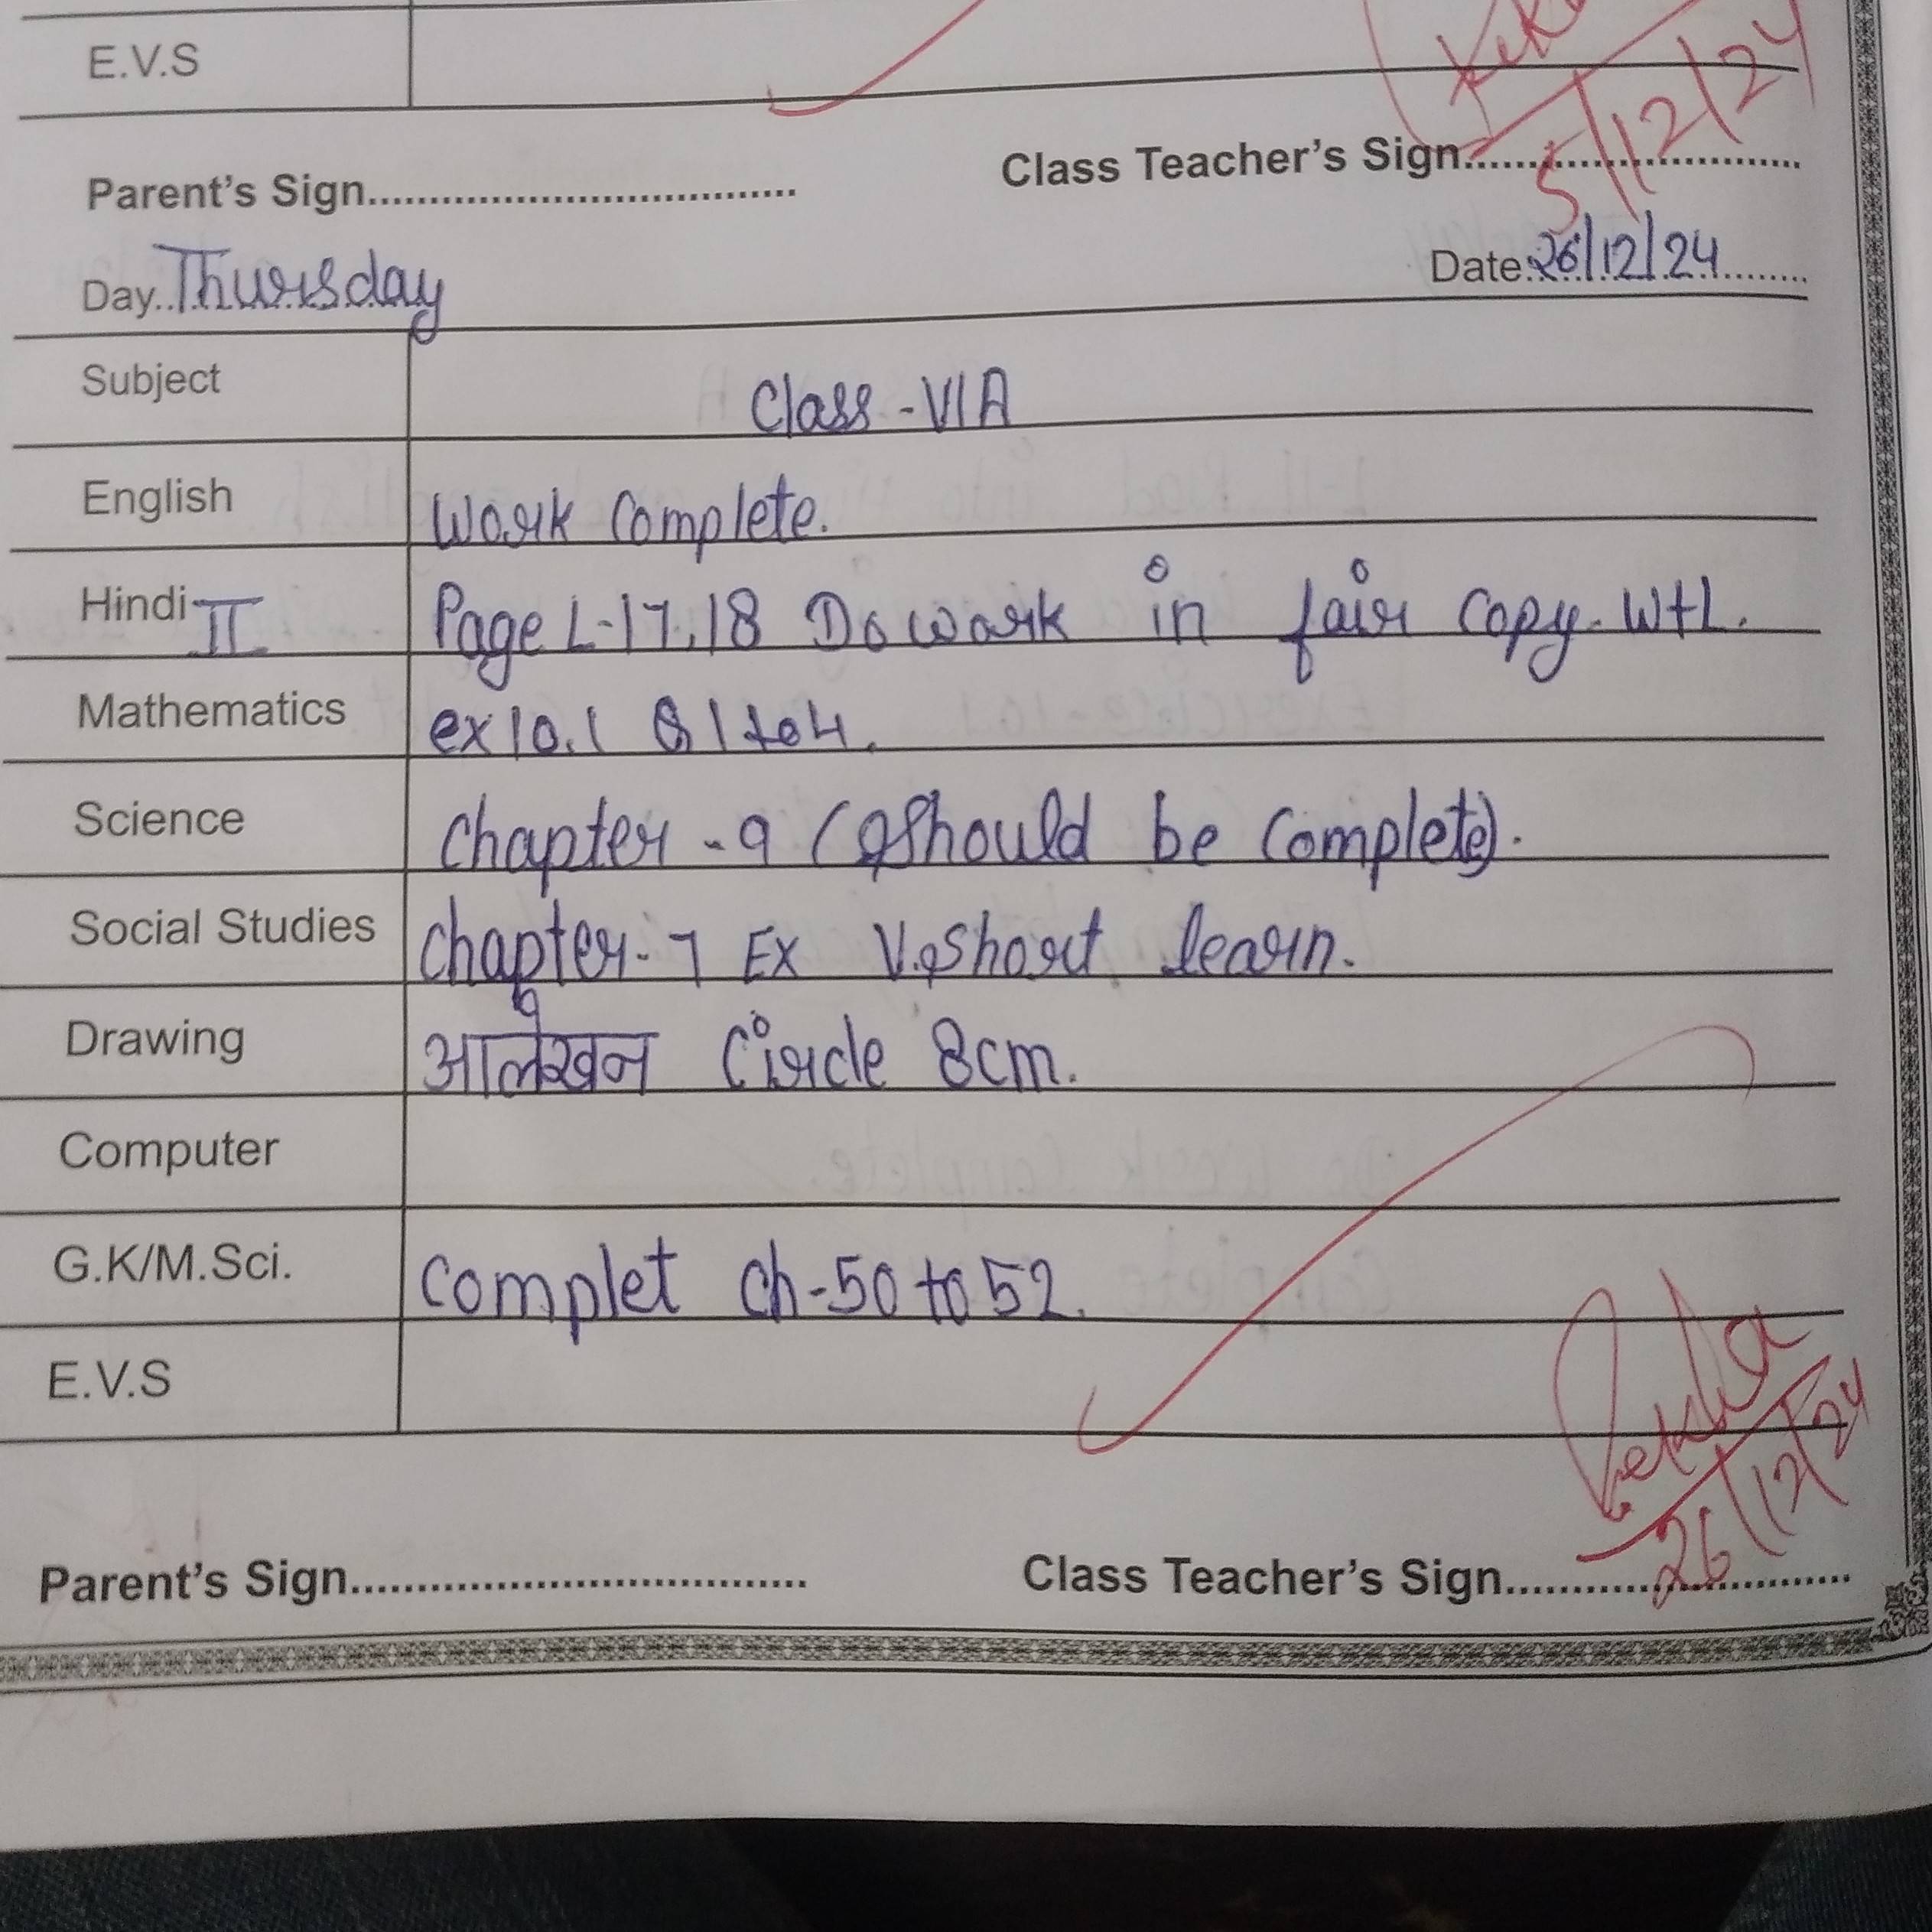 E.V.S
5/12/24
Parent's Sign.................................... Class Teacher's Sign..............................
Day..Thursday Date.26/12/24........
Subject Class-VIA
English Work Complete.
Hindi-II Page L-17,18 Do work in fair copy. W+L.
Mathematics ex10.1 Q1to4.
Science Chapter-9 (Should be Complete).
Social Studies Chapter-7 Ex V.Short learn.
Drawing आलेखन Circle 8cm.
Computer
G.K/M.Sci. Complet Ch-50 to 52.
E.V.S
26/12/24
Parent's Sign................................... Class Teacher's Sign..........................